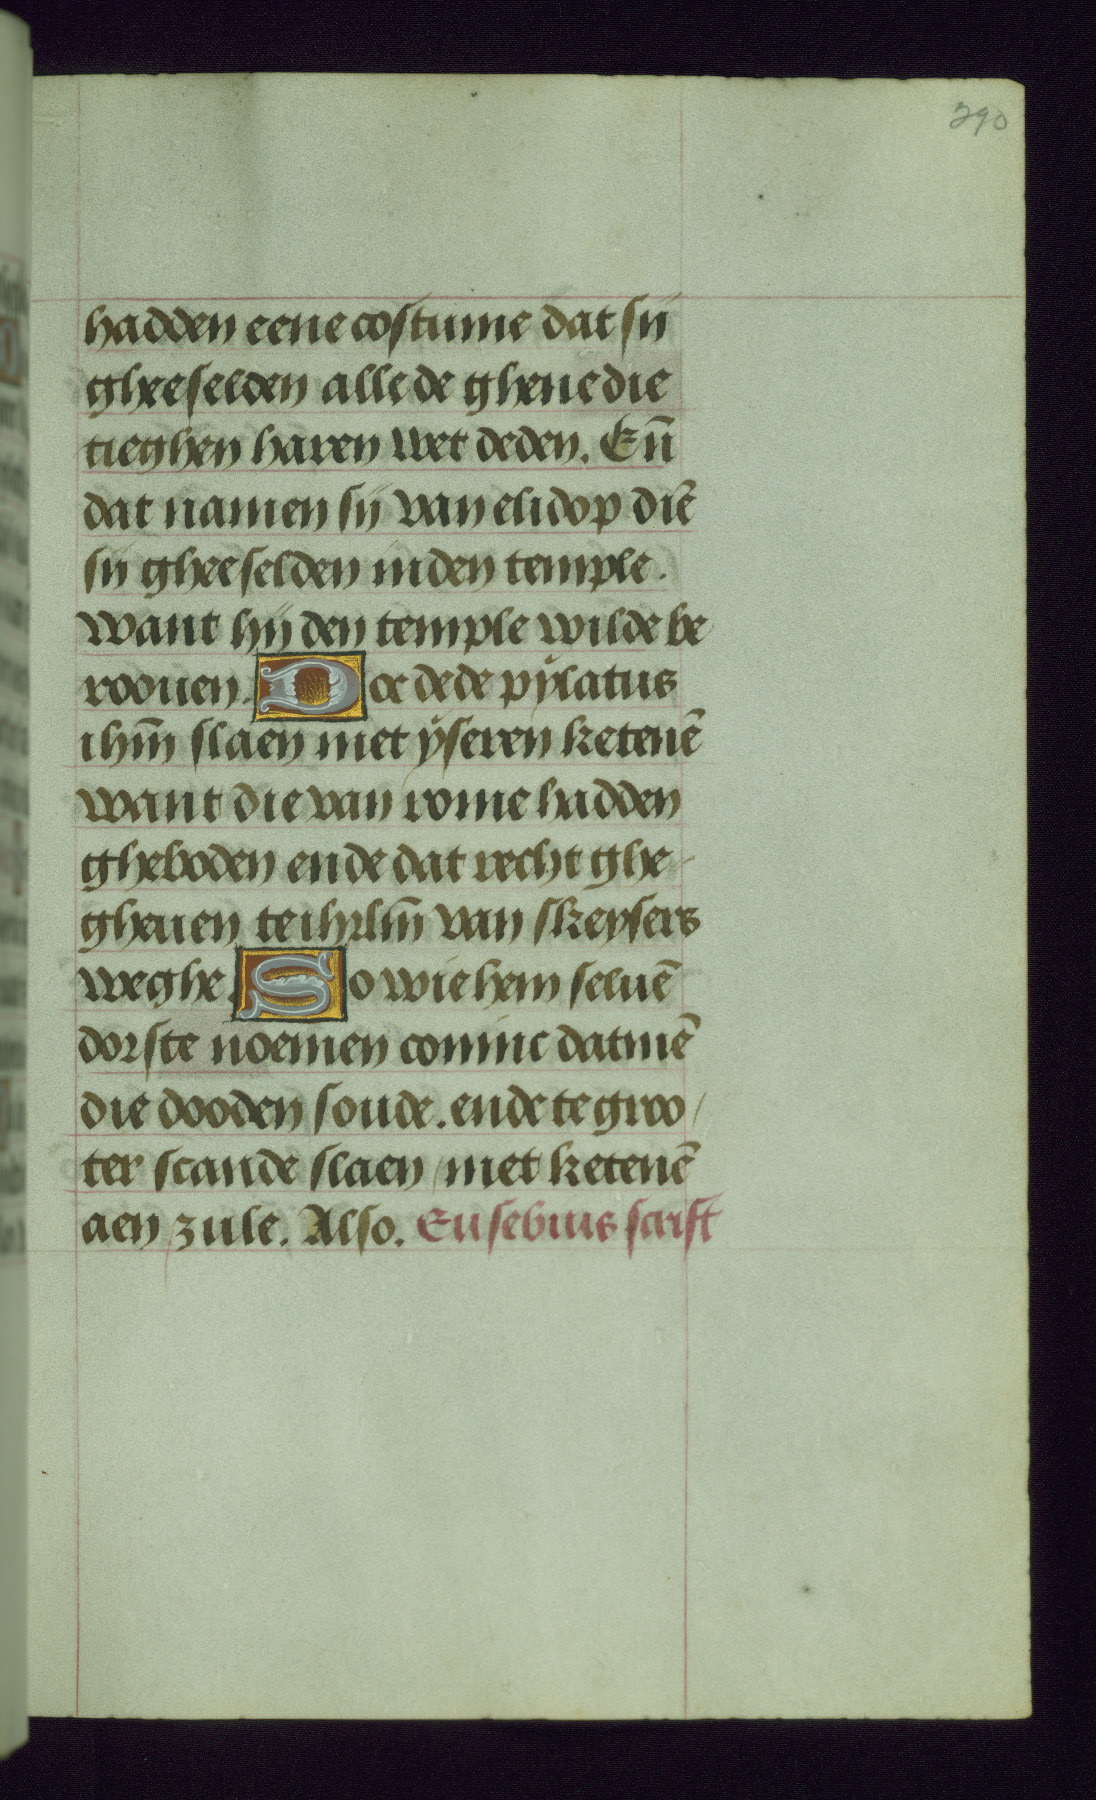 290
hadden eene costume dat sij
gheeselden alle de ghene die
tieghen haren wet deden. En̄
dat namen sij van elidop diē
sij gheeselden inden temple.
Want hij den temple wilde be
roouen. Doe dede pylatus
ihm̄ slaen met yseren ketenē
want die van rome hadden
gheboden ende dat recht ghe-
gheuen te ihrlm̄ van skeysers
weghe. So wie hem seluē
dorste noemen coninc datmē
die dooden soude. ende te groo/
ter scande slaen met ketenē
aen zule. Also. Eusebius scrift